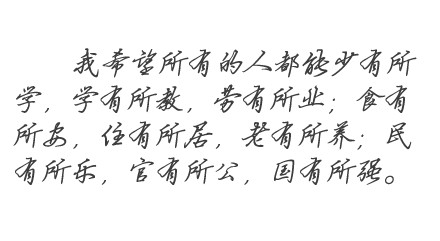 我希望所有的人都能少有所
学，学有所教，劳有所业；食有
所安，住有所居，老有所养；民
有所乐，官有所公，国有所强。